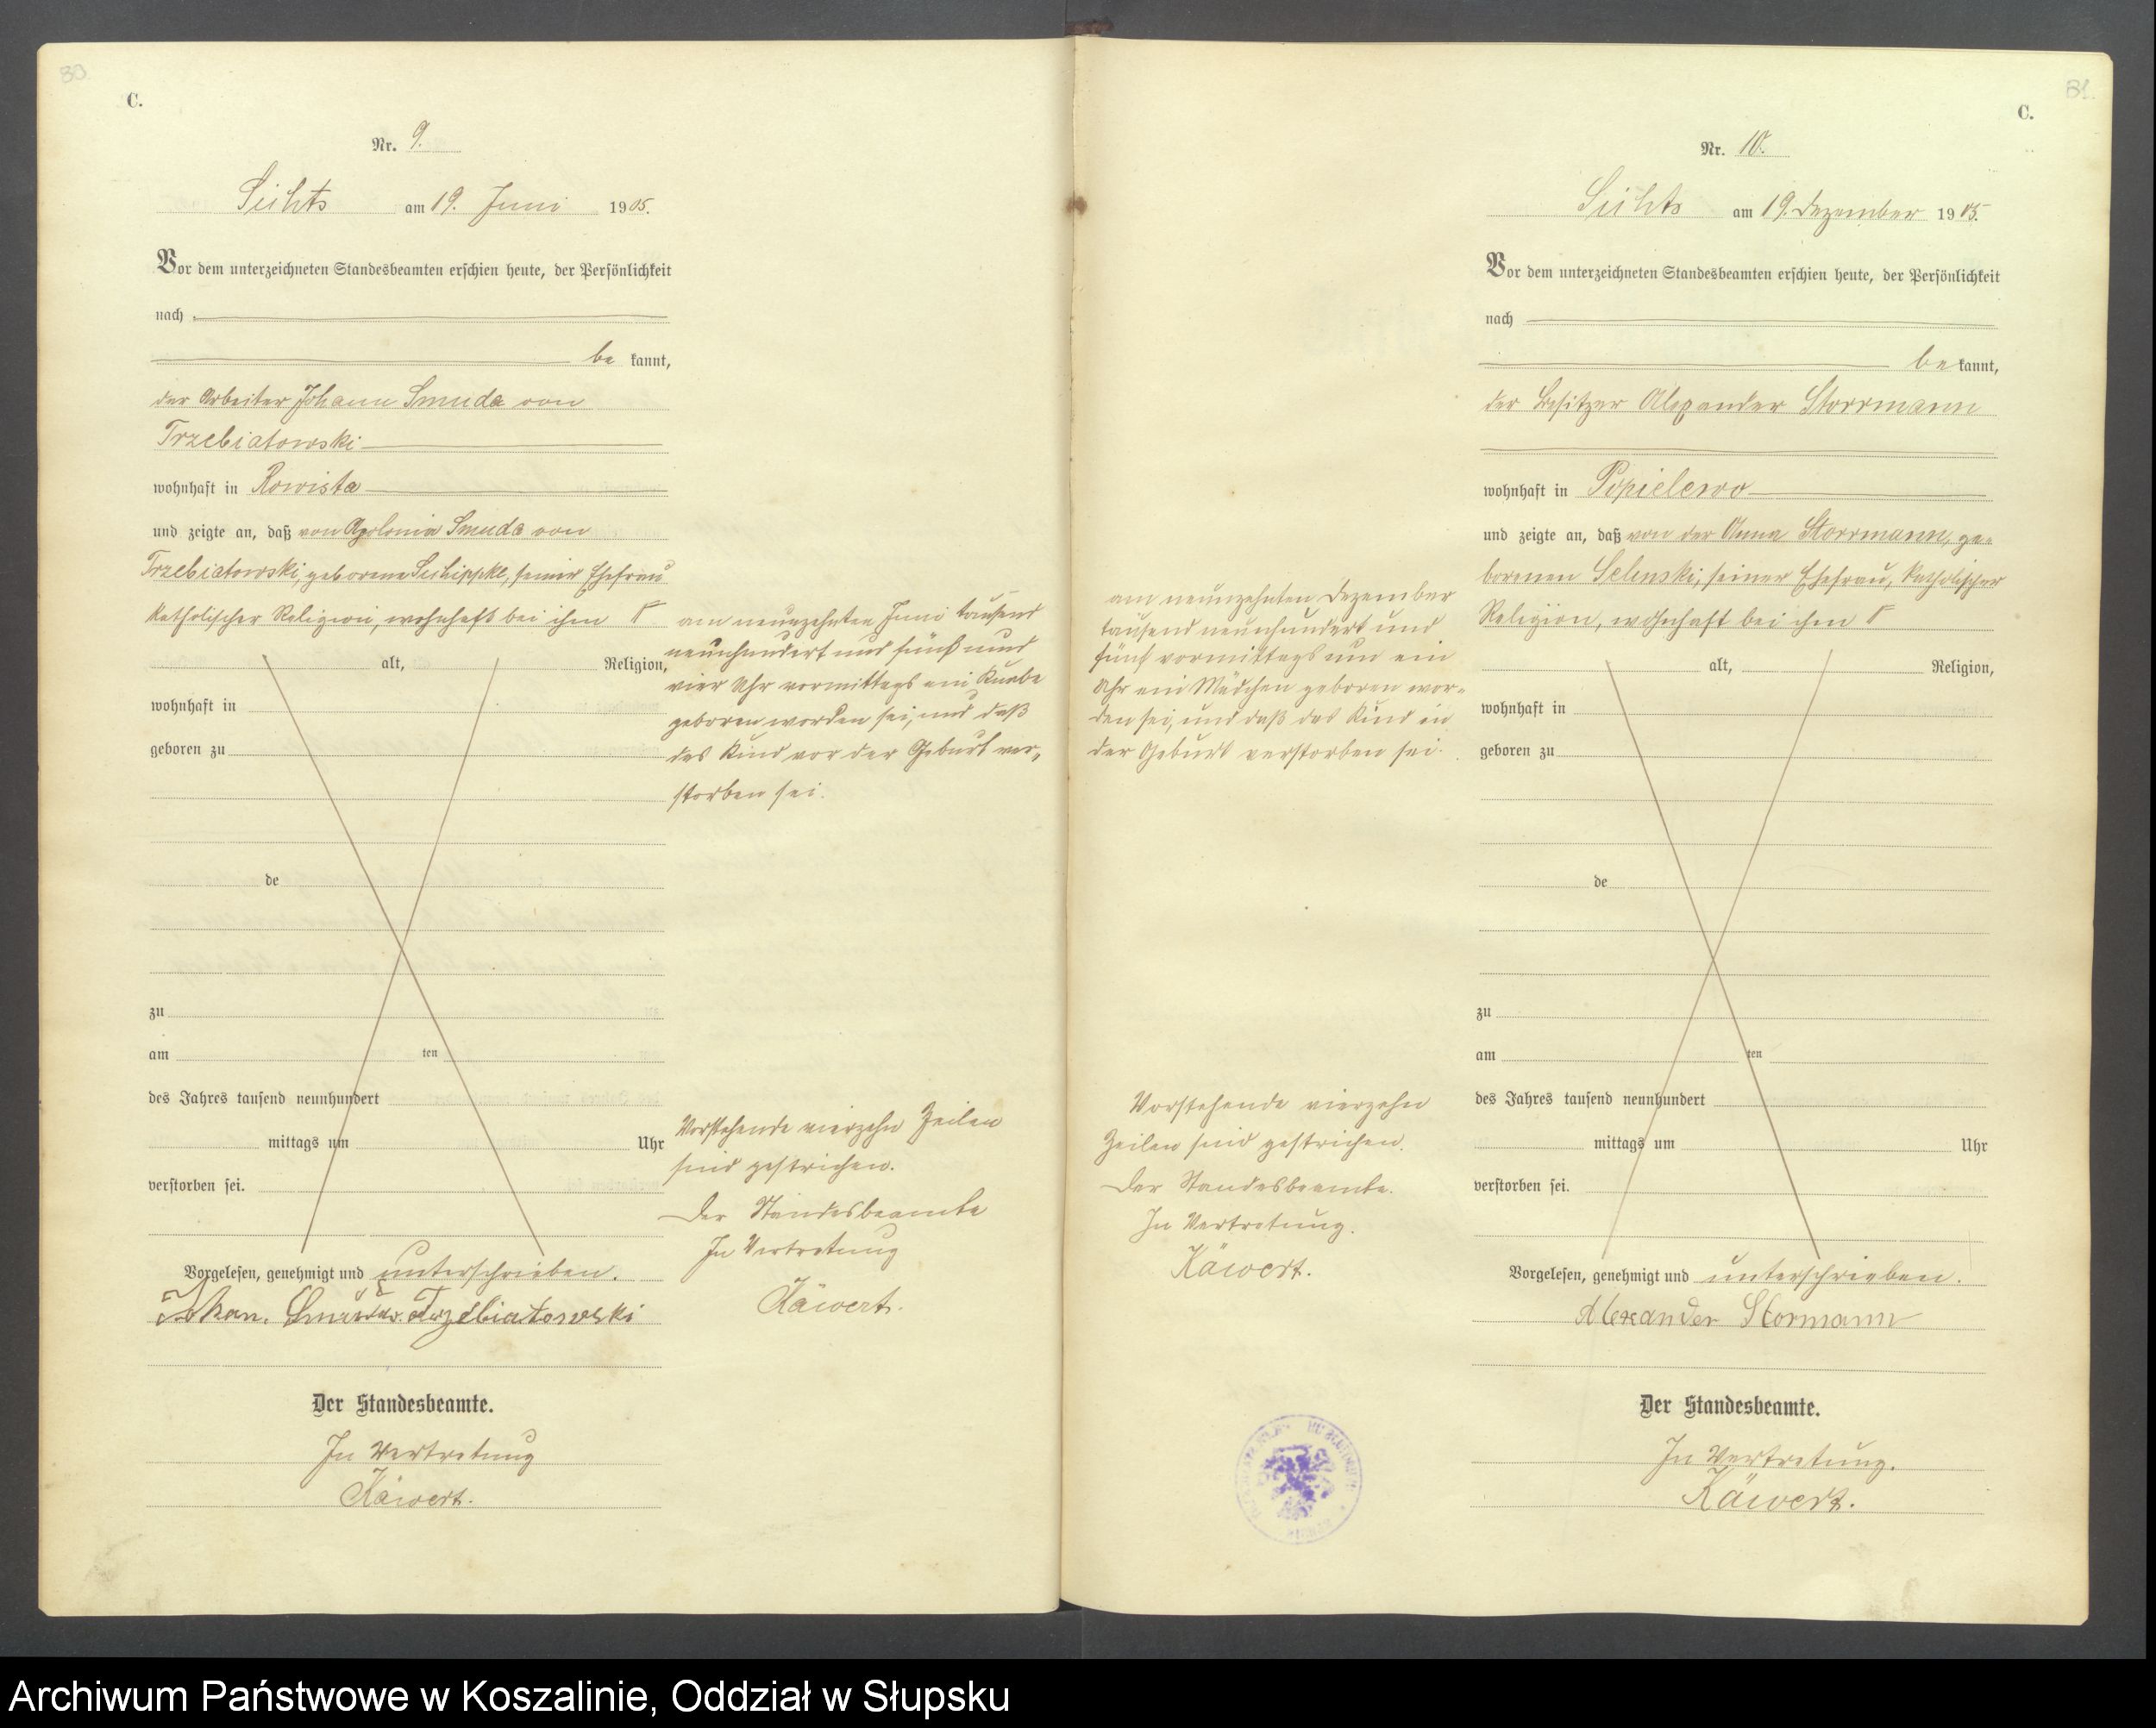 30
C.
Nr. 9.
am 19. Juni 1905.
Vor dem unterzeichneten Standesbeamten erschien heute, der Persönlichkeit
nach
be kannt,
der Arbeiter Johann Smuda von
Trzebiatowski
wohnhaft in Rowista
und zeigte an, daß von Apolonia Smuda von
Trzebiatowski, geborene seiner Ehefrau
katholischer Religion, wohnhaft bei ihm Γ
alt, Religion,
wohnhaft in
geboren zu
de
zu
am ten
des Jahres tausend neunhundert
mittags um Uhr
verstorben sei.
Vorgelesen, genehmigt und unterschrieben.
Johan. Smuda v. Trzebiatowski
Der Standesbeamte.
In Vertretung
Käwert.
Γ am neunzehnten Juni tausend
neunhundert und fünf und
vier Uhr vormittags ein Knabe
geboren worden sei, und daß
das Kind vor der Geburt ver-
storben sei.
Vorstehende vierzehn Zeilen
sind gestrichen.
Der Standesbeamte
In Vertretung
Käwert.
31.
C.
Nr. 10.
am 19. Dezember 1905.
Vor dem unterzeichneten Standesbeamten erschien heute, der Persönlichkeit
nach
be kannt,
der Besitzer Alexander Storrmann
wohnhaft in Popielewo
und zeigte an, daß von der Anna Storrmann, ge-
borenen Selinski, seiner Ehefrau, katholischer
Religion, wohnhaft bei ihm Γ
alt, Religion,
wohnhaft in
geboren zu
de
zu
am ten
des Jahres tausend neunhundert
mittags um Uhr
verstorben sei.
Vorgelesen, genehmigt und unterschrieben.
Alexander Stormann
Der Standesbeamte.
In Vertretung.
Käwert.
am neunzehnten Dezember
tausend neunhundert und
fünf vormittags um ein
Uhr ein Mädchen geboren wor-
den sei, und daß das Kind in
der Geburt verstorben sei.
Vorstehende vierzehn
Zeilen sind gestrichen.
Der Standesbeamte.
In Vertretung.
Käwert.
Archiwum Państwowe w Koszalinie, Oddział w Słupsku